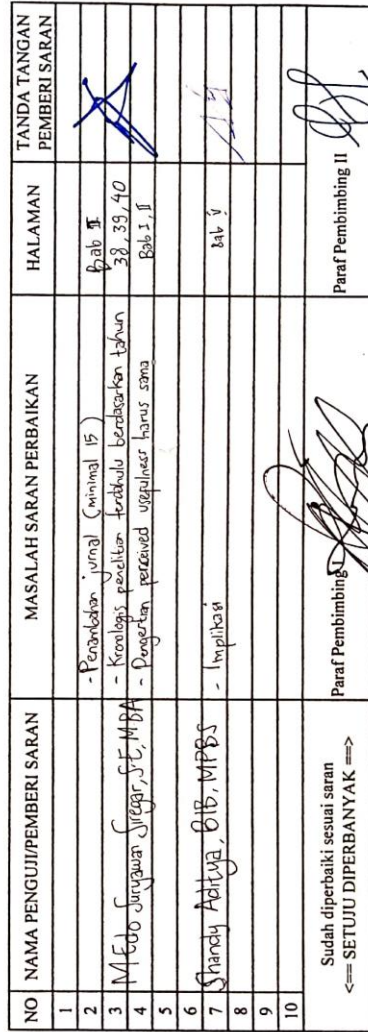 NO NAMA PENGUJI/PEMBERI SARAN MASALAH SARAN PERBAIKAN HALAMAN TANDA TANGAN PEMBERI SARAN
1
2 - Penambahan jurnal (minimal 15) Bab II
3 M Edo Suryawan Siregar, S.E, MBA - Kronologis penelitian terdahulu berdasarkan tahun 38, 39, 40
4 - Pengertian perceived usepulness harus sama Bab I, II
5
6
7 Shandy Aditya, BIB, MPBS - Implikasi Bab V
8
9
10
Sudah diperbaiki sesuai saran
<== SETUJU DIPERBANYAK ==>
Paraf Pembimbing I
Paraf Pembimbing II